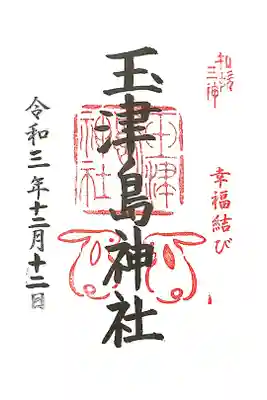 和歌三神
幸福結び
玉津島神社
令和三年十二月十二日